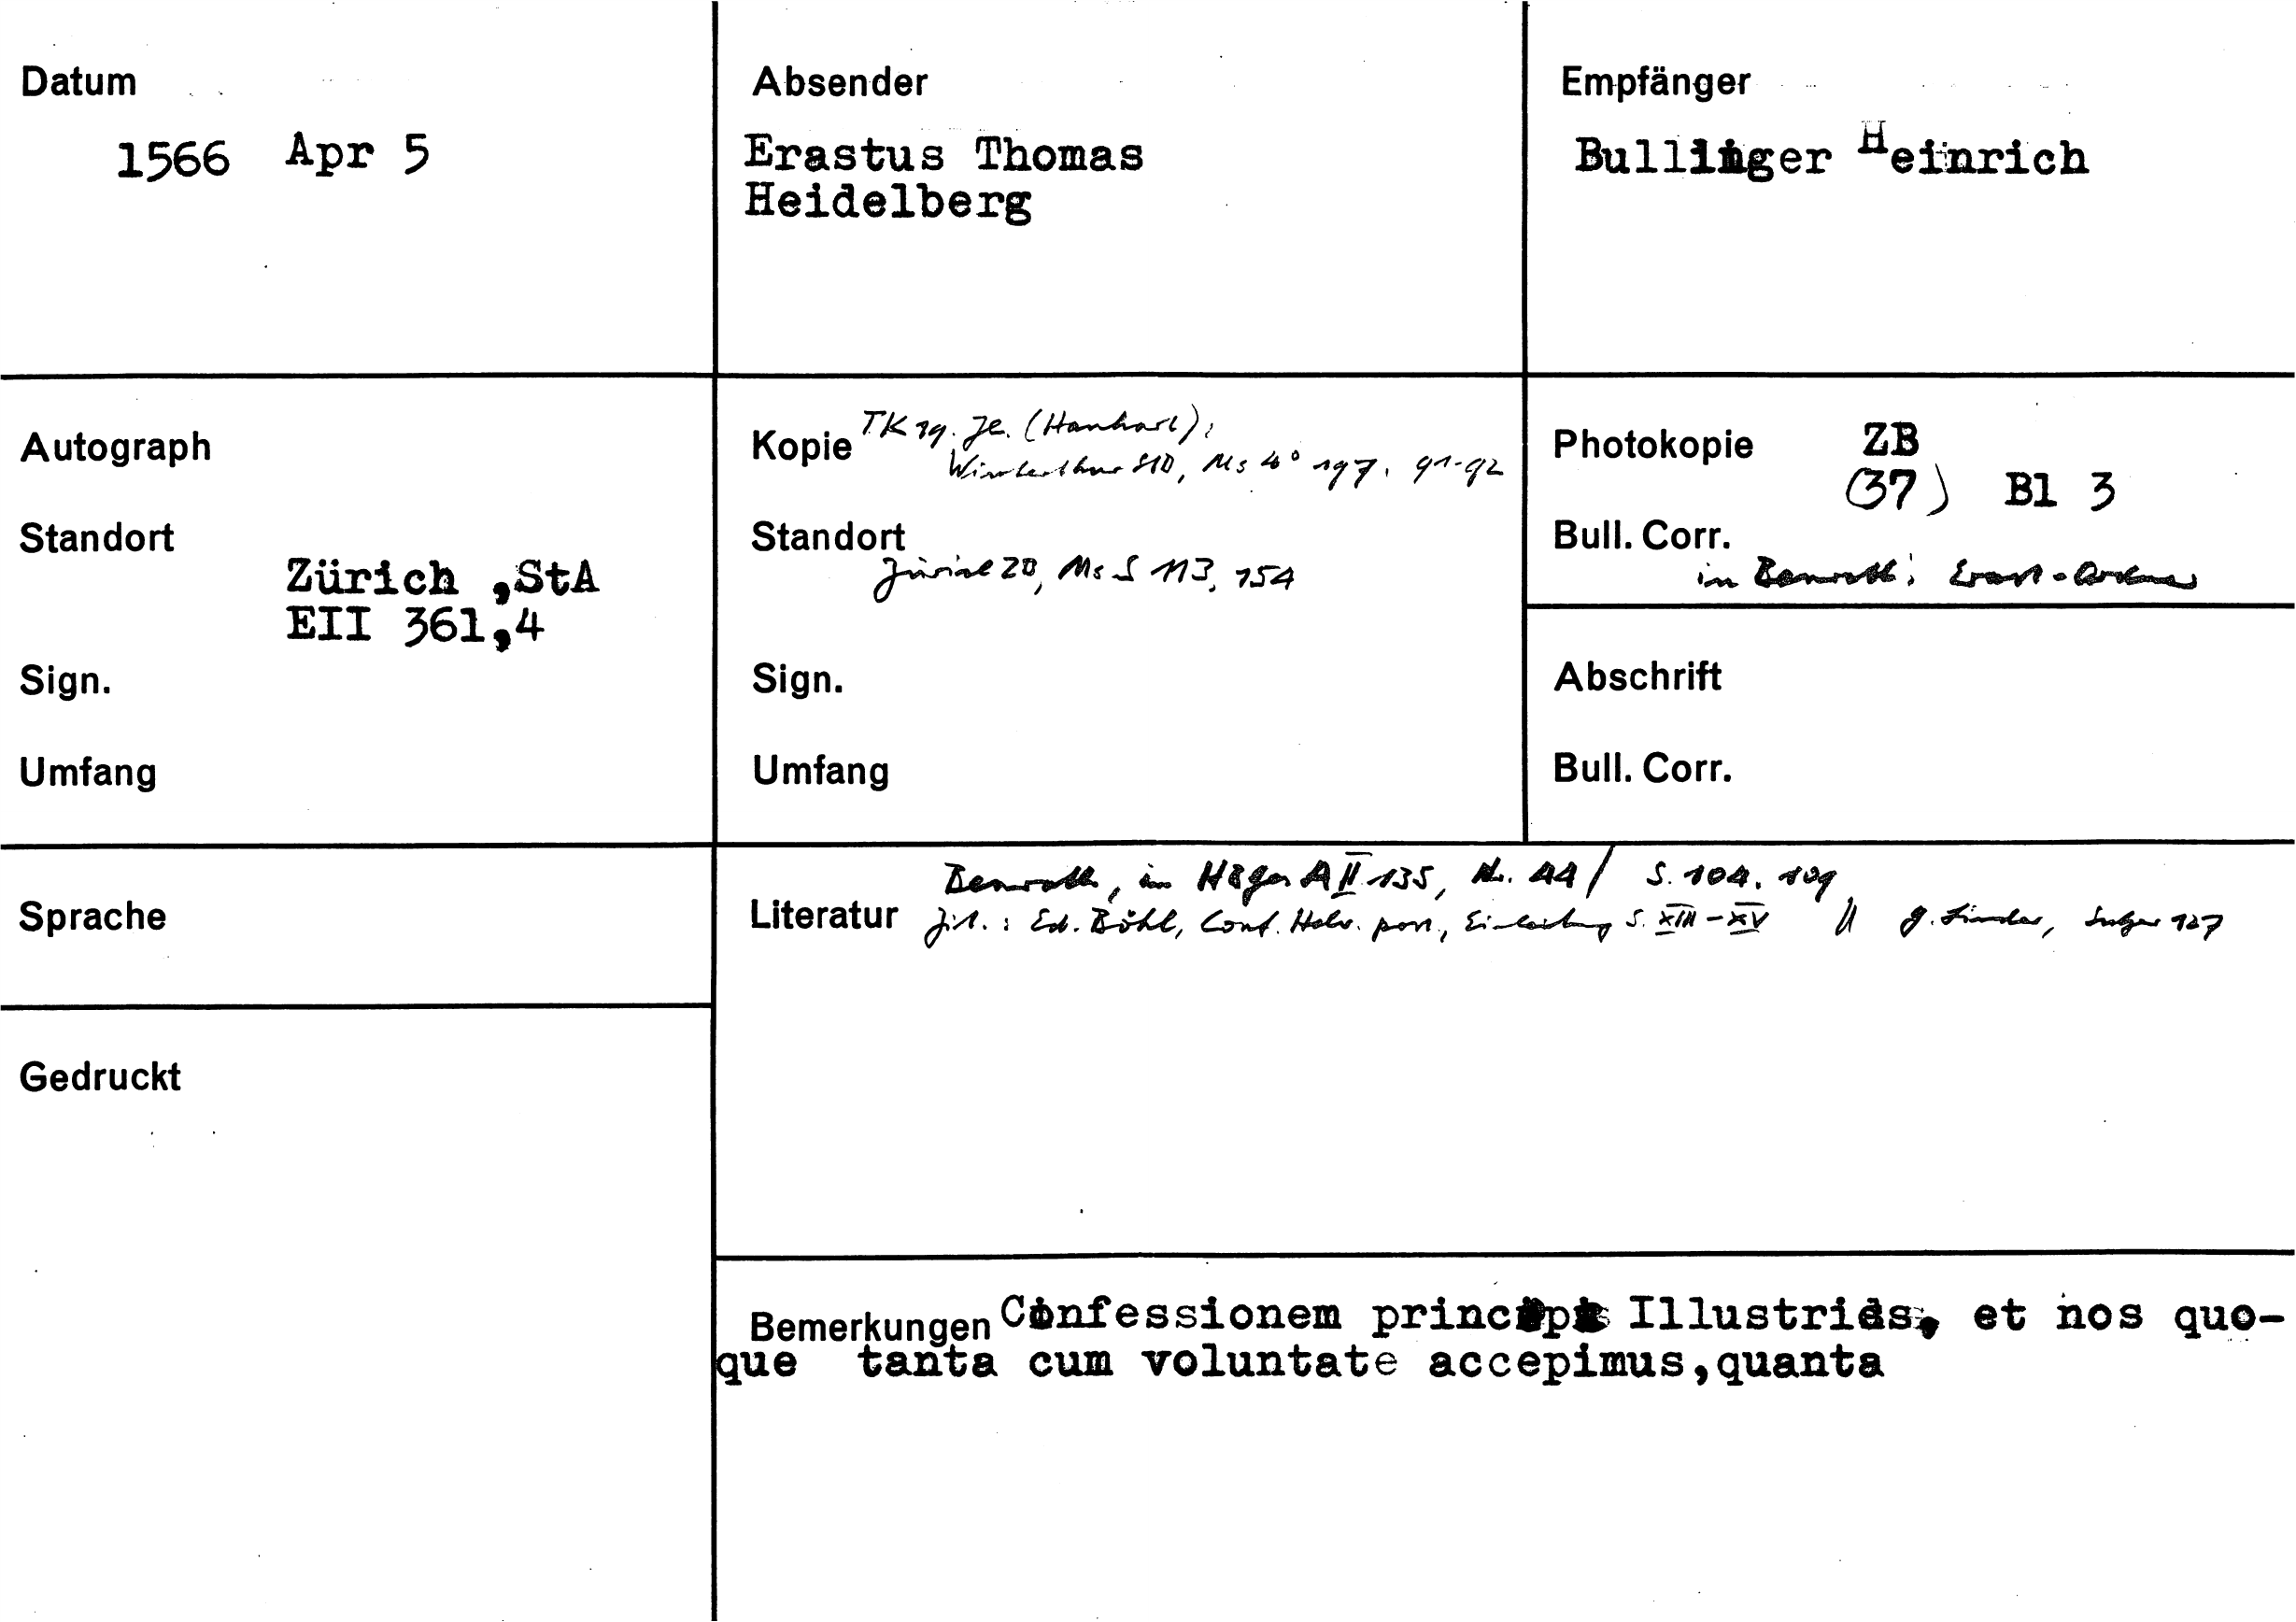 Datum
1566 Apr 5
Absender
Erastus Thomas
Heidelberg
Empfänger
Bullinger Heinrich
Autograph
Standort
Zürich ,StA
EII 361,4
Sign.
Umfang
Kopie TK 19. Jh. (Hanhart):
Winterthur StB, Ms 4° 197, 91-92
Standort
Zürich ZB, Ms S 113, 154
Sign.
Umfang
Photokopie ZB
(37) Bl 3
Bull. Corr.
in Benrath: Erast-
Abschrift
Bull. Corr.
Sprache
Gedruckt
Benrath, in HBGes A II 135, Nr. 44 / S. 104. 109
Literatur Zit.: Ed. Böhl, Conf. Helv. post., Einleitung S. XIII-XV // G. Linder, Sulzer 127
Bemerkungen Confessionem principis Illustriss, et nos quo-
que tanta cum voluntate accepimus,quanta